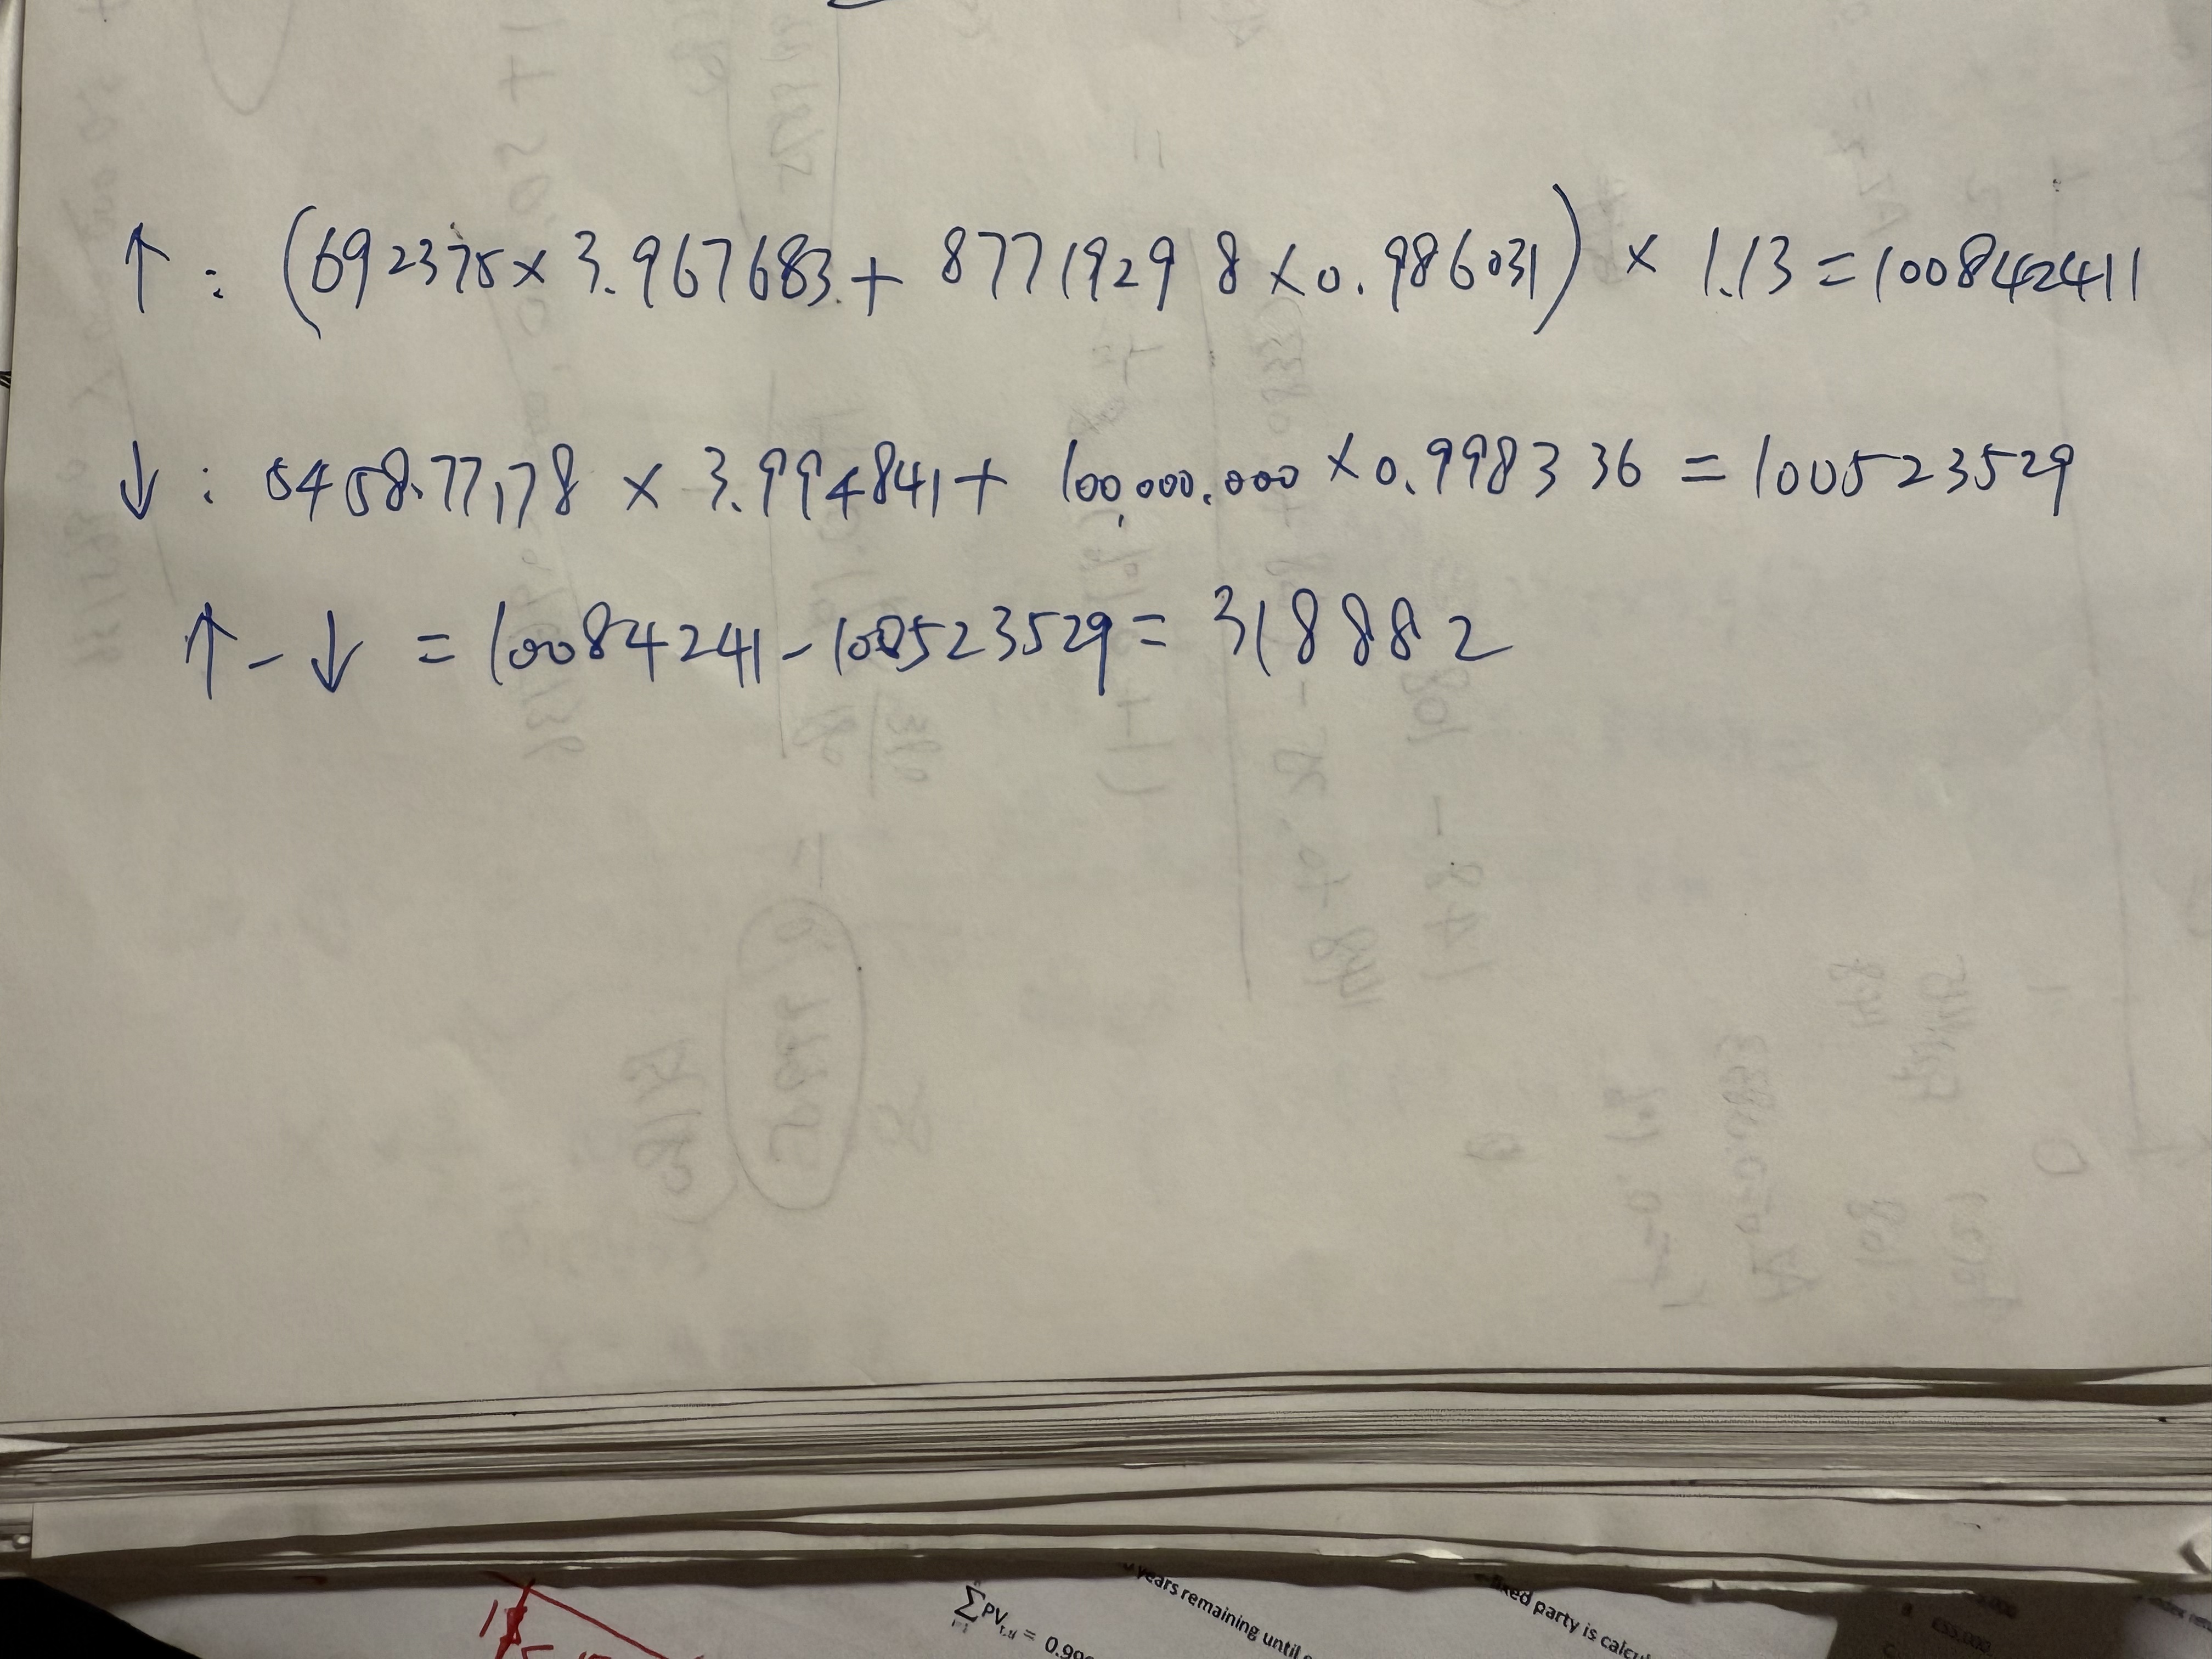 ↑ : (692375 × 3.967683 + 87719298 × 0.986031) × 1.13 = 100842411
↓ : 5458.77178 × 3.994841 + 100,000.000 × 0.998336 = 100523529
↑ - ↓ = 10084241 - 100523529 = 318882
∑PV
years remaining until
fixed party is calcu